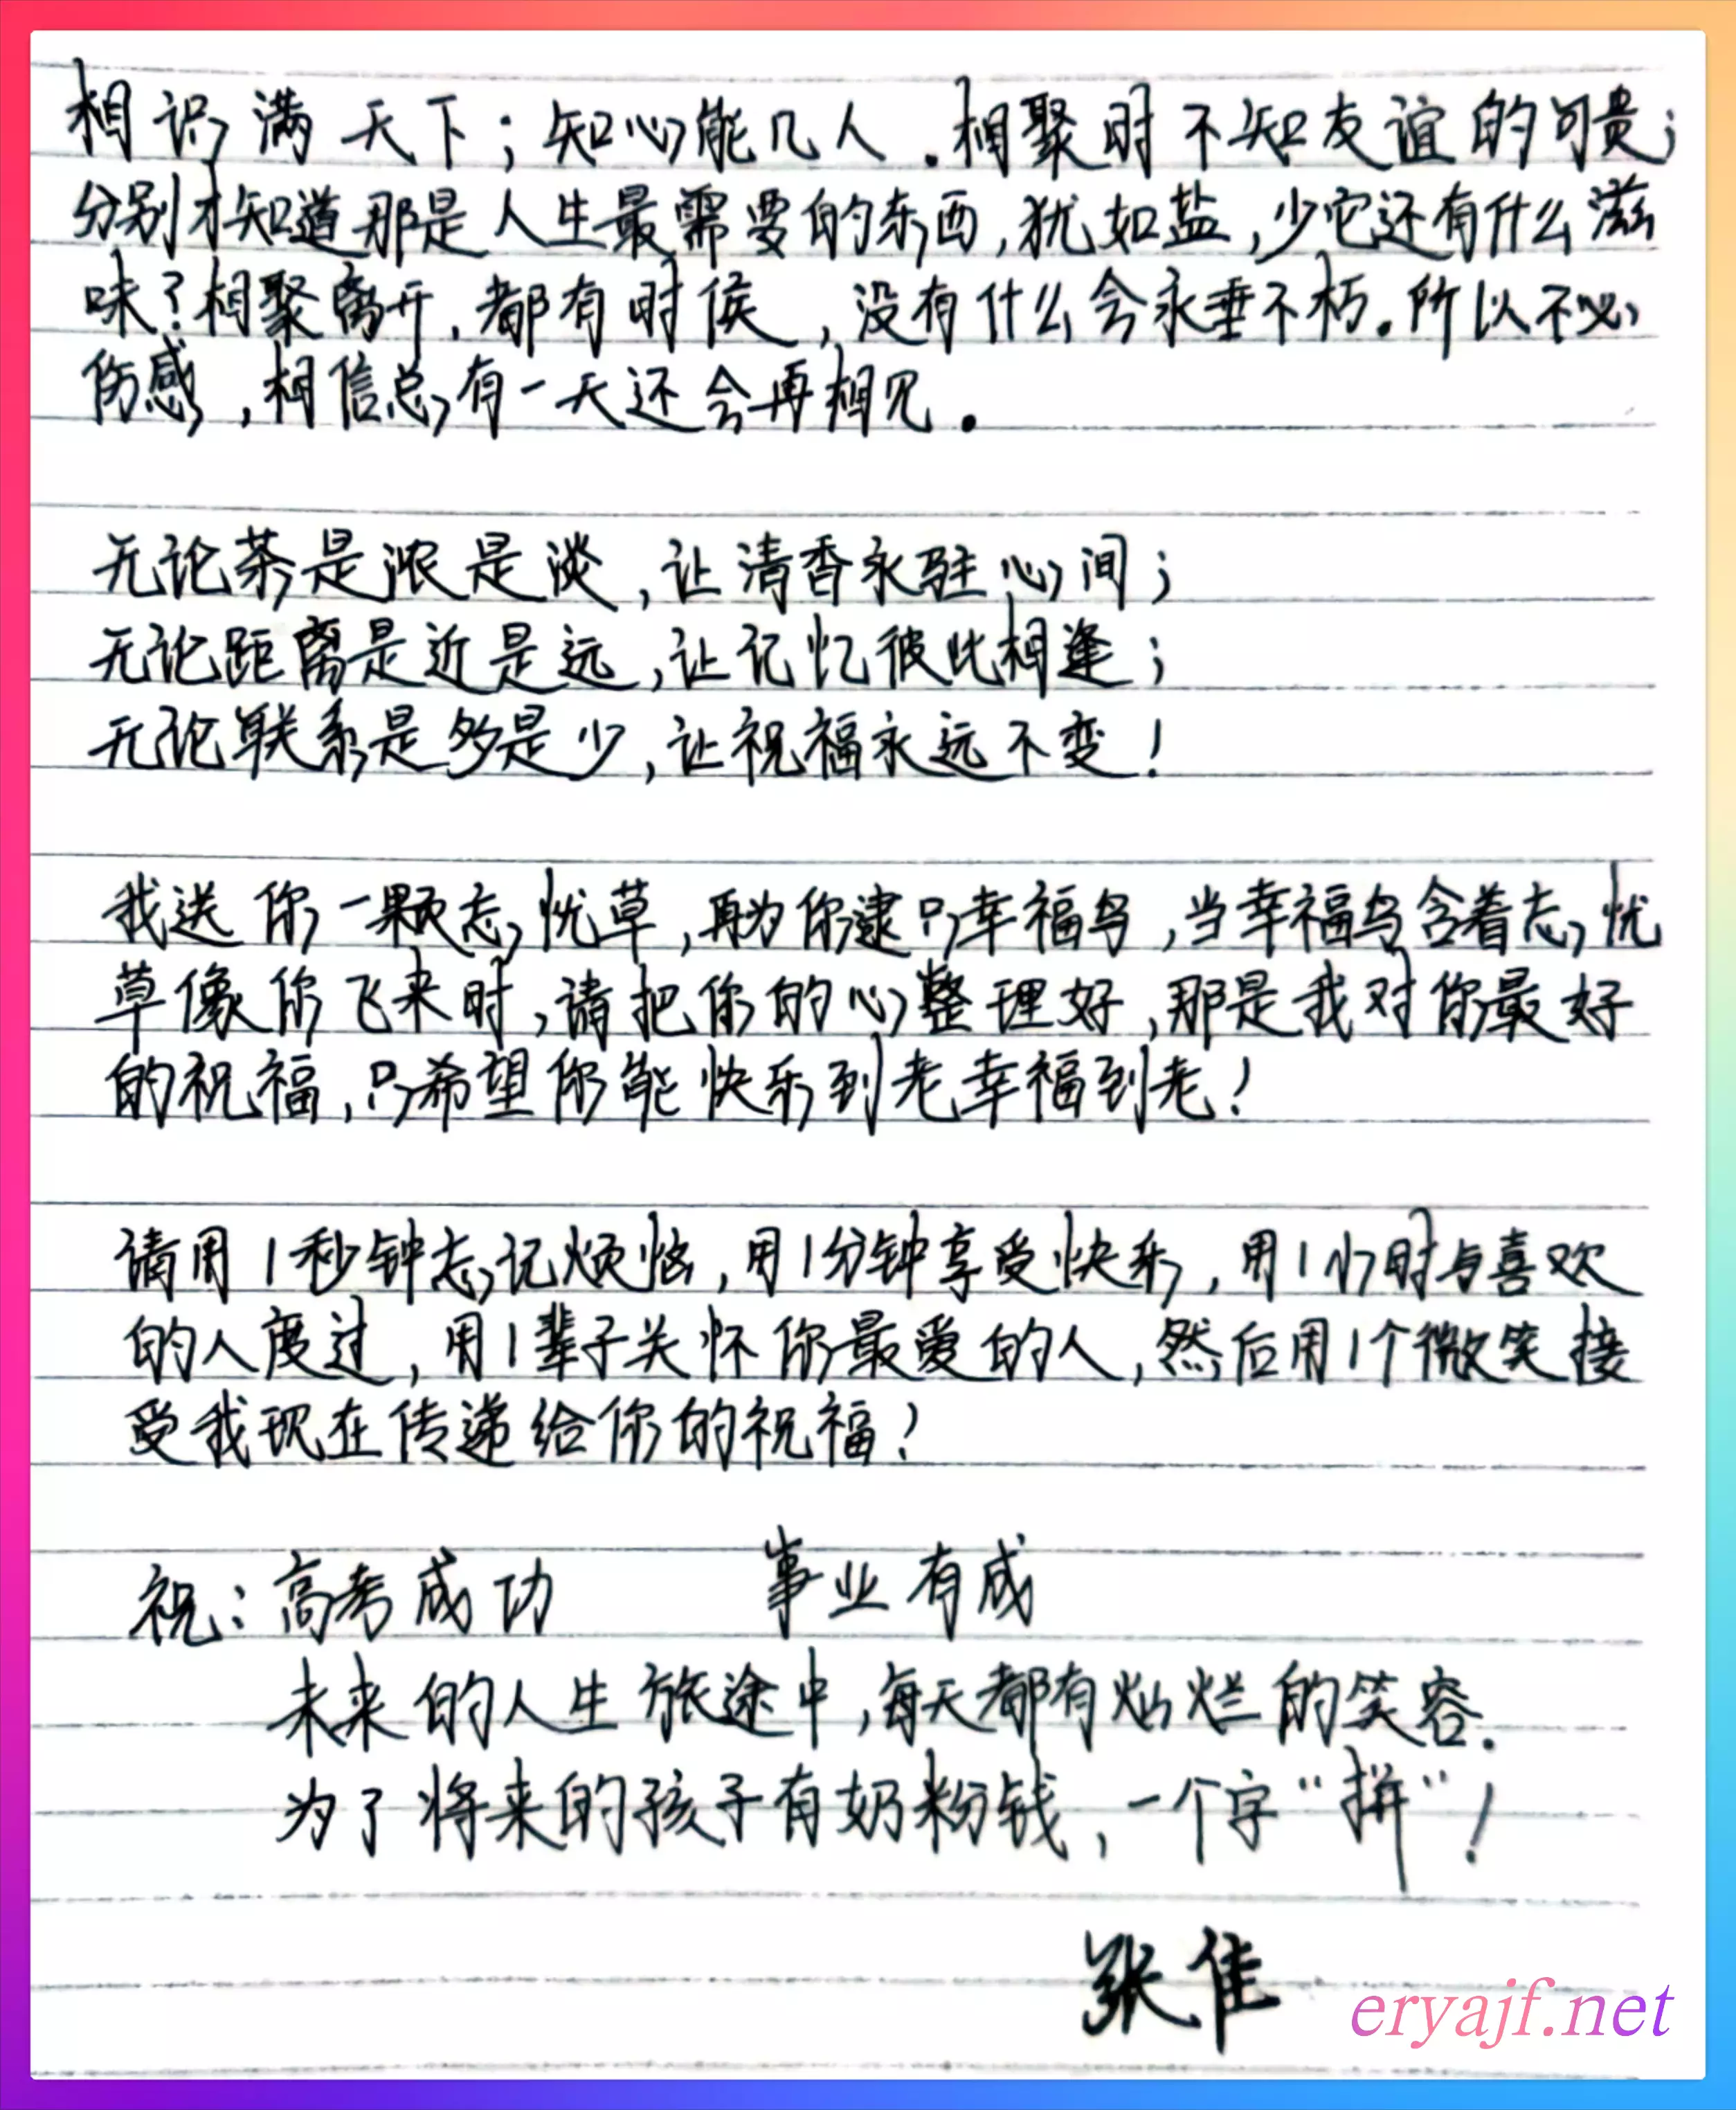 相识满天下；知心能几人．相聚时不知友谊的可贵；
分别才知道那是人生最需要的东西，犹如盐，少它还有什么滋
味？相聚离开，都有时候，没有什么会永垂不朽．所以不必
伤感，相信总有一天还会再相见．
无论茶是浓是淡，让清香永驻心间；
无论距离是近是远，让记忆彼此相逢；
无论联系是多是少，让祝福永远不变！
我送你一颗忘忧草，再为你逮只幸福鸟，当幸福鸟含着忘忧
草像你飞来时，请把你的心整理好，那是我对你最好
的祝福，只希望你能快乐到老幸福到老！
请用1秒钟忘记烦恼，用1分钟享受快乐，用1小时与喜欢
的人度过，用1辈子关怀你最爱的人，然后用1个微笑接
受我现在传递给你的祝福！
祝：高考成功 事业有成
未来的人生旅途中，每天都有灿烂的笑容．
为了将来的孩子有奶粉钱，一个字“拼”！
张佳
eryajf.net